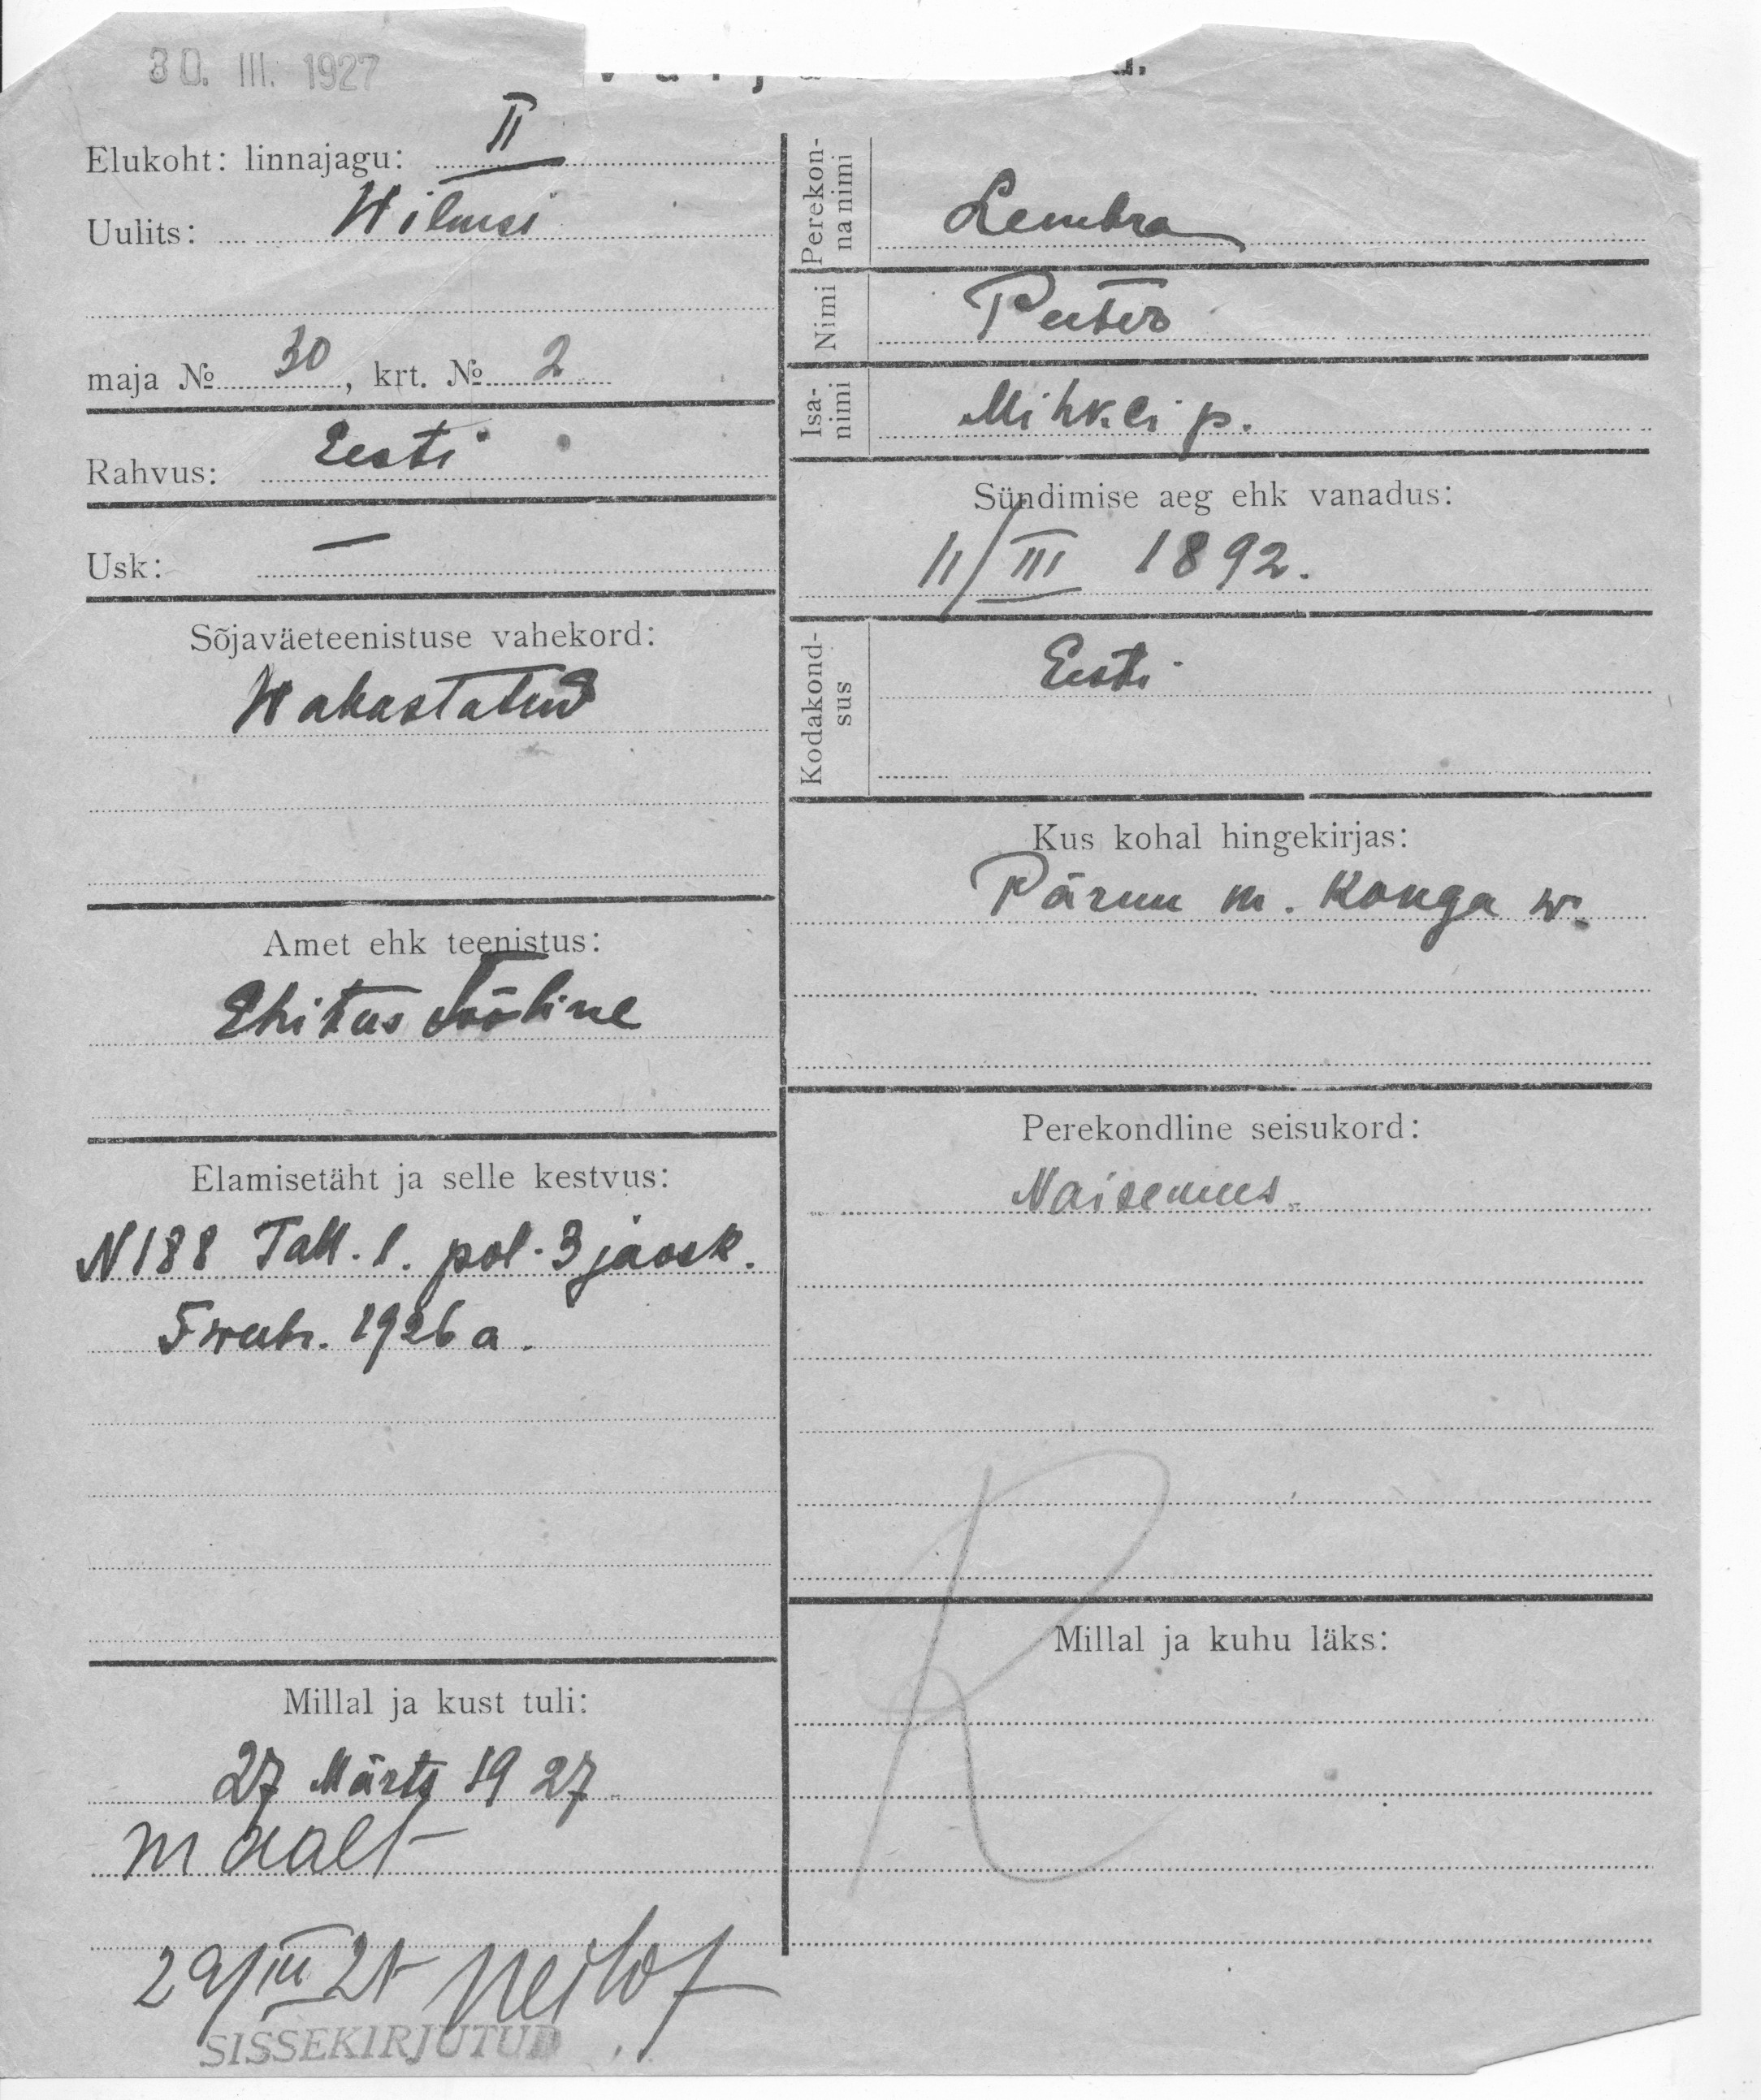 30. III. 1927
Elukoht: linnajagu: II
Uulits: Wilmsi
maja № 30, krt. № 2
Rahvus: Eesti
Usk: —
Sõjaväeteenistuse vahekord:
Wabastatud
Amet ehk teenistus:
Ehitus tööline
Elamisetäht ja selle kestvus:
N 188 Tall. l. pol. 3 jaosk.
5 weebr. 1926 a.
Millal ja kust tuli:
27 Märts 1927
maalt
29/III 27
SISSEKIRJUTUD
Perekon-
na nimi
Lembra
Nimi Peeter
Isa-
nimi
Mihkli p.
Sündimise aeg ehk vanadus:
11/III 1892.
Kodakond-
sus
Eesti
Kus kohal hingekirjas:
Pärnu m. Konga w.
Perekondline seisukord:
Naisemees
Millal ja kuhu läks:
R